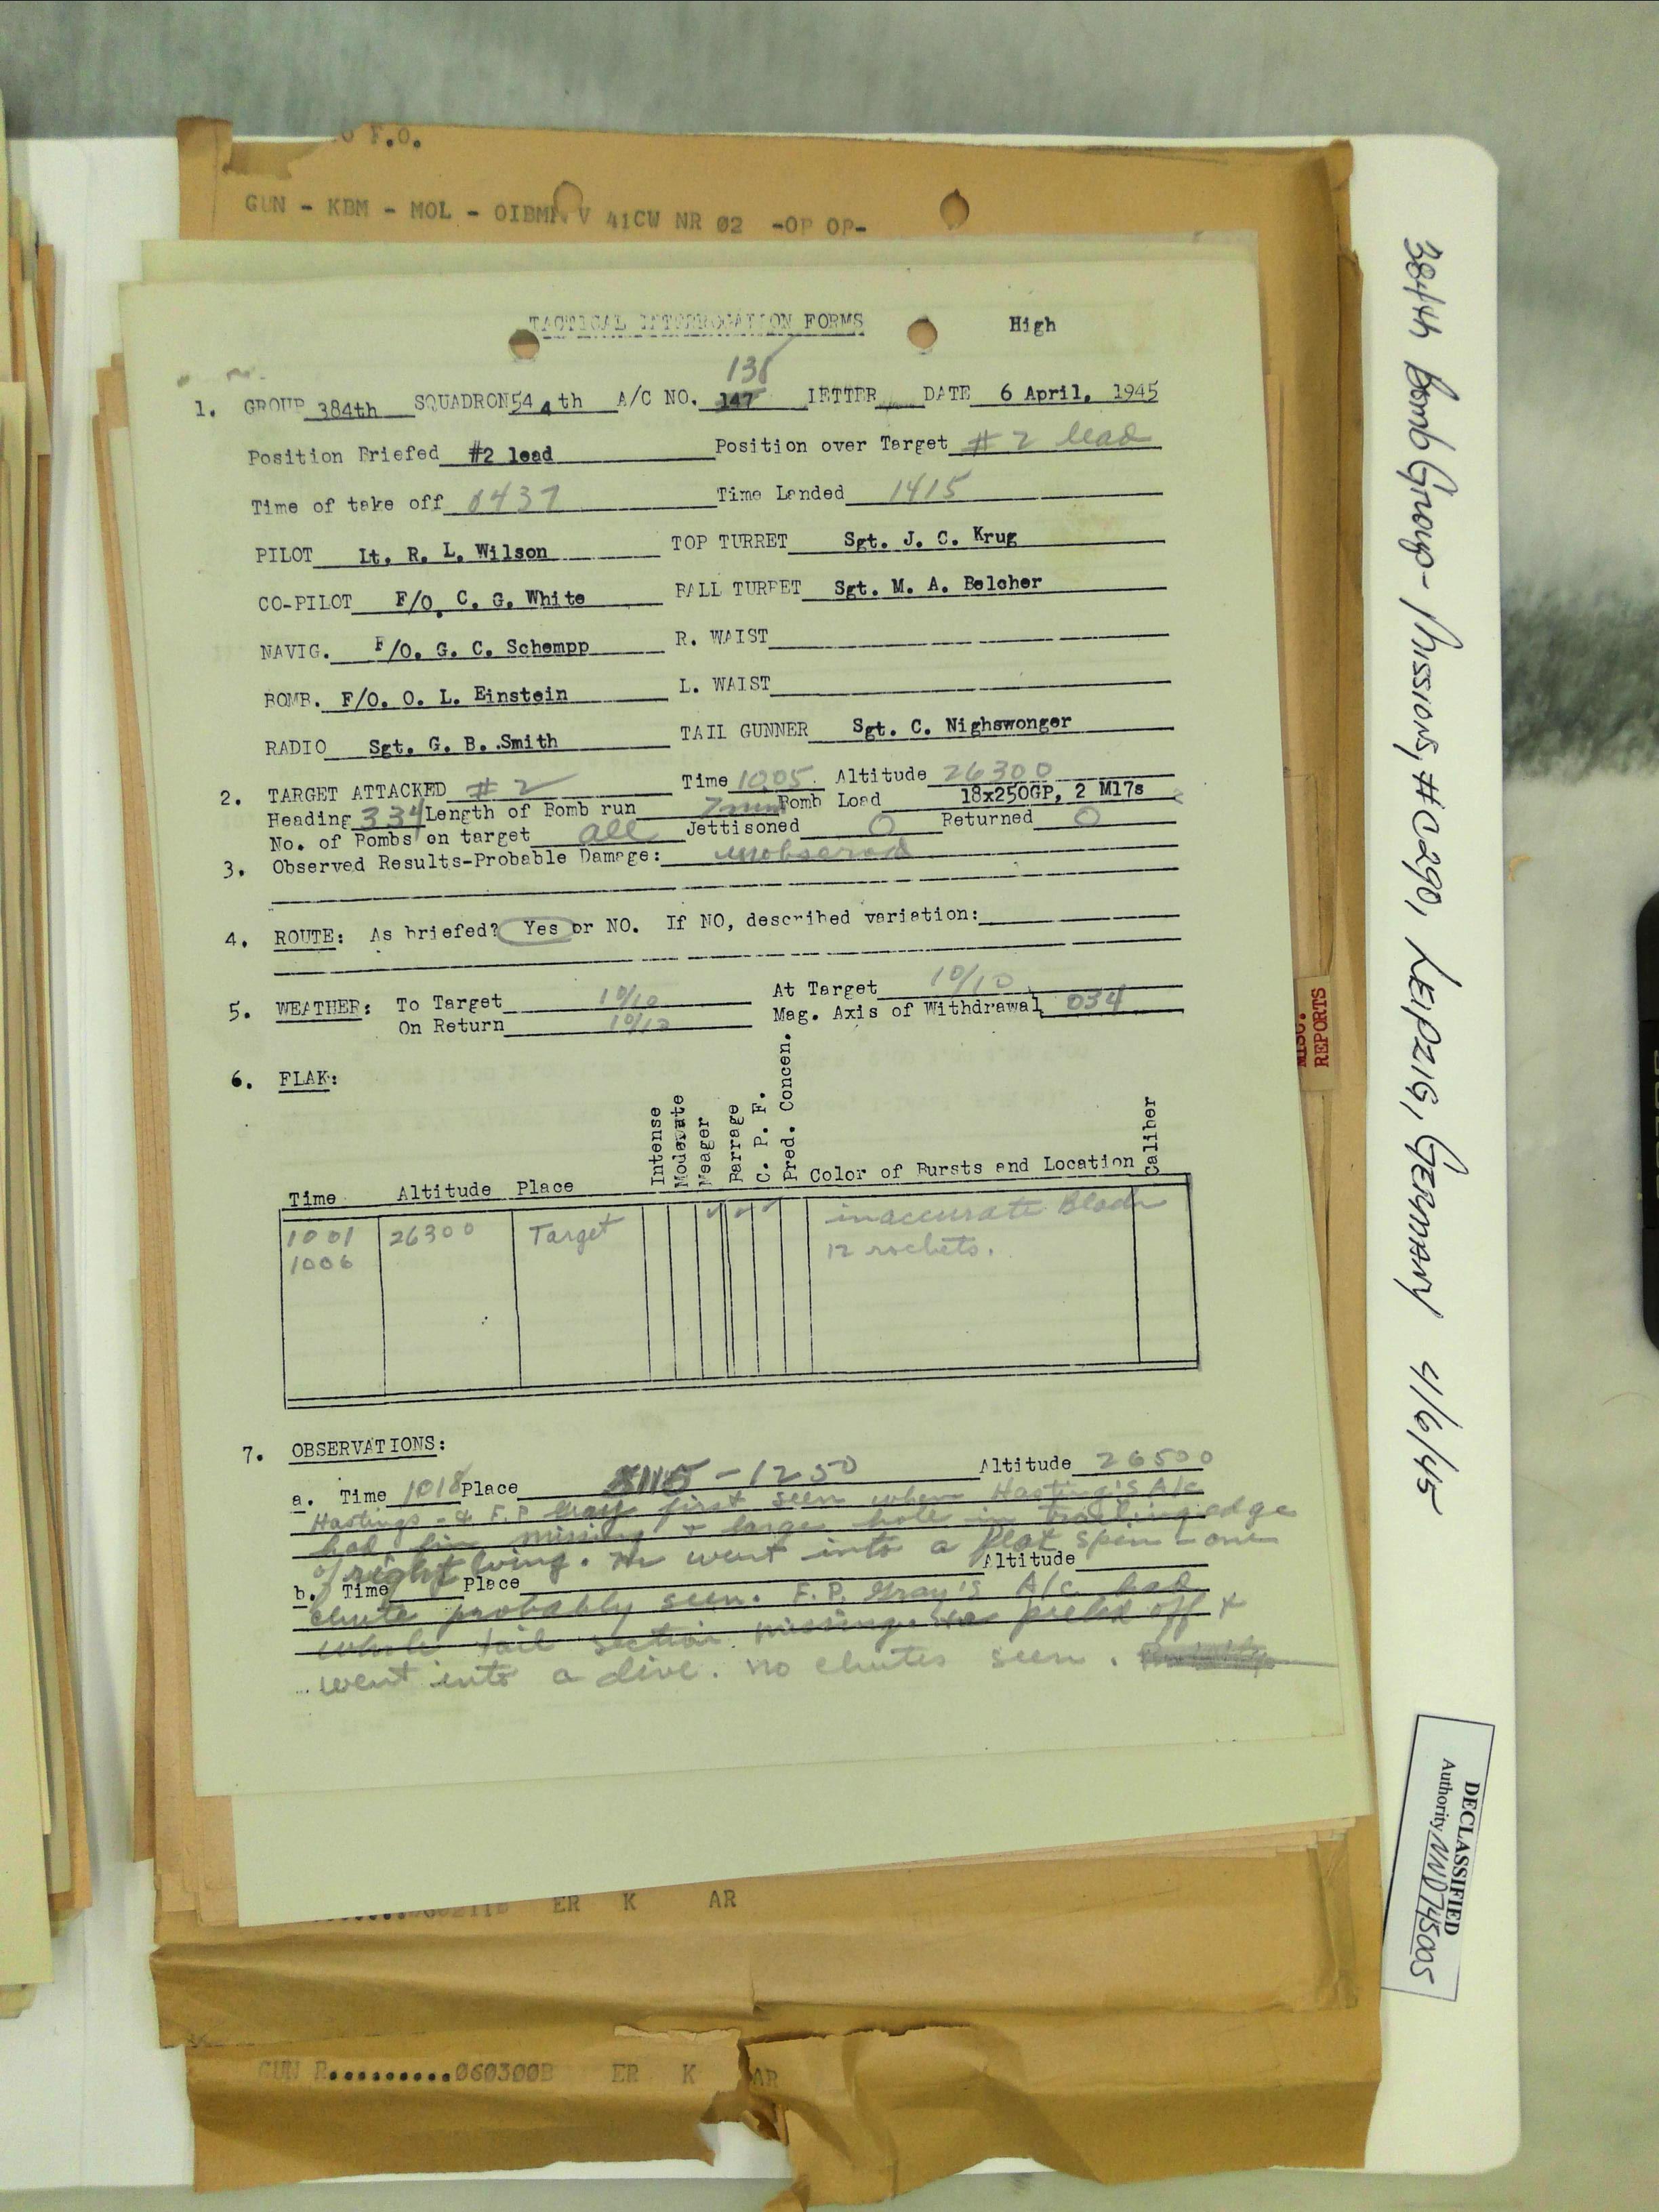 F.O.
GUN - KBM - MOL - OIBMN V 41CW NR 02 -OP OP-
TACTICAL INTERROGATION FORMS High
138
1. GROUP 384th SQUADRON 544th A/C NO. 147 LETTER DATE 6 April, 1945
Position Briefed #2 lead Position over Target #2 lead
Time of take off 0437 Time Landed 1415
PILOT Lt. R. L. Wilson TOP TURRET Sgt. J. C. Krug
CO-PILOT F/O. C. G. White BALL TURRET Sgt. M. A. Belcher
NAVIG. F/O. G. C. Schempp R. WAIST
BOMB. F/O. O. L. Einstein L. WAIST
RADIO Sgt. G. B. Smith TAIL GUNNER Sgt. C. Nighswonger
2. TARGET ATTACKED #2 Time 1005 Altitude 26300
Heading 334 Length of Bomb run 7 min Bomb Load 18x250GP, 2 M17s
No. of Bombs on target all Jettisoned 0 Returned 0
3. Observed Results-Probable Damage: unobserved
4. ROUTE: As briefed? Yes or NO. If NO, described variation:
5. WEATHER: To Target 10/10 At Target 10/10
On Return 10/10 Mag. Axis of Withdrawal 034
6. FLAK:
Time Altitude Place Intense Moderate Meager Barrage C. P. F. Pred. Concen. Color of Bursts and Location Caliber
1001 26300 Target ✓ ✓ ✓ inaccurate Black
1006 12 rockets.
7. OBSERVATIONS:
a. Time 1018 Place 5115-1250 Altitude 26500
Hastings - & F.P. Gray first seen when Hasting's A/c
had fin missing & large hole in trailing edge
of right wing. He went into a flat spin - one
b. Time Place Altitude
chute probably seen. F.P. Gray's A/c had
whole tail section missing. He peeled off &
went into a dive. no chutes seen.
ER K AR
GUN R..........060300B ER K AR
MISC. REPORTS
384th Bomb Group - Missions, #0290, LEIPZIG, GERMANY 4/6/45
DECLASSIFIED
Authority NND745005